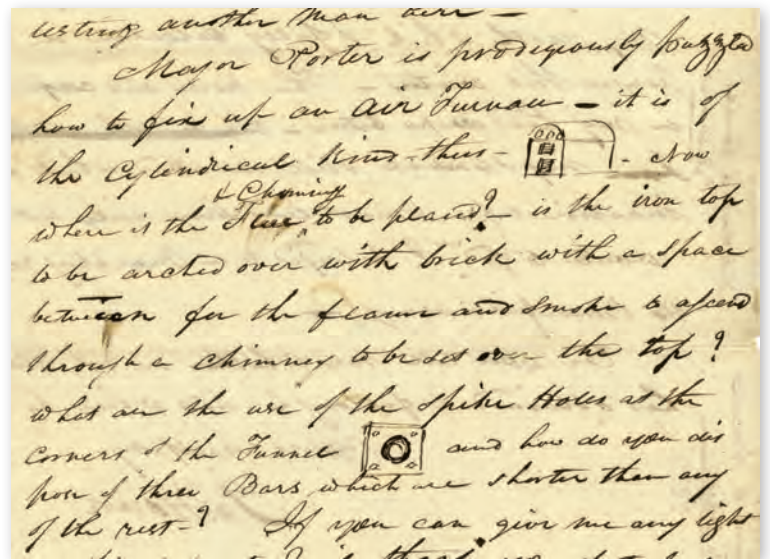 testing another Man here —
Major Porter is prodigeously puzzled
how to fix up an Air Furnace — it is of
the Cylindrical Kind - thus - - Now
& Chimney
where is the Flue to be placed? — is the iron top
to be arched over with brick with a space
between for the flame and smoke to ascend
through a chimney to be set over the top?
what are the use of the Spike Holes at the
corners of the Funnel and how do you dis
pose of three Bars which are shorter than any
of the rest - ? If you can give me any light